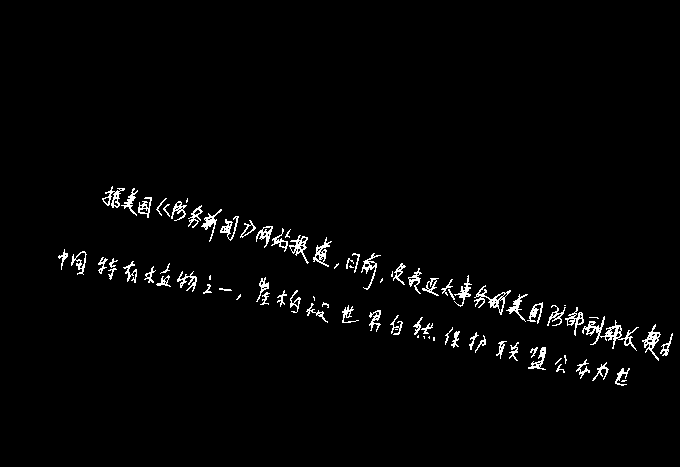 据美国《防务新闻》网站报道,日前,负责亚太事务的美国防部副部长
中国特有植物之一,崖柏被世界自然保护联盟公布为世